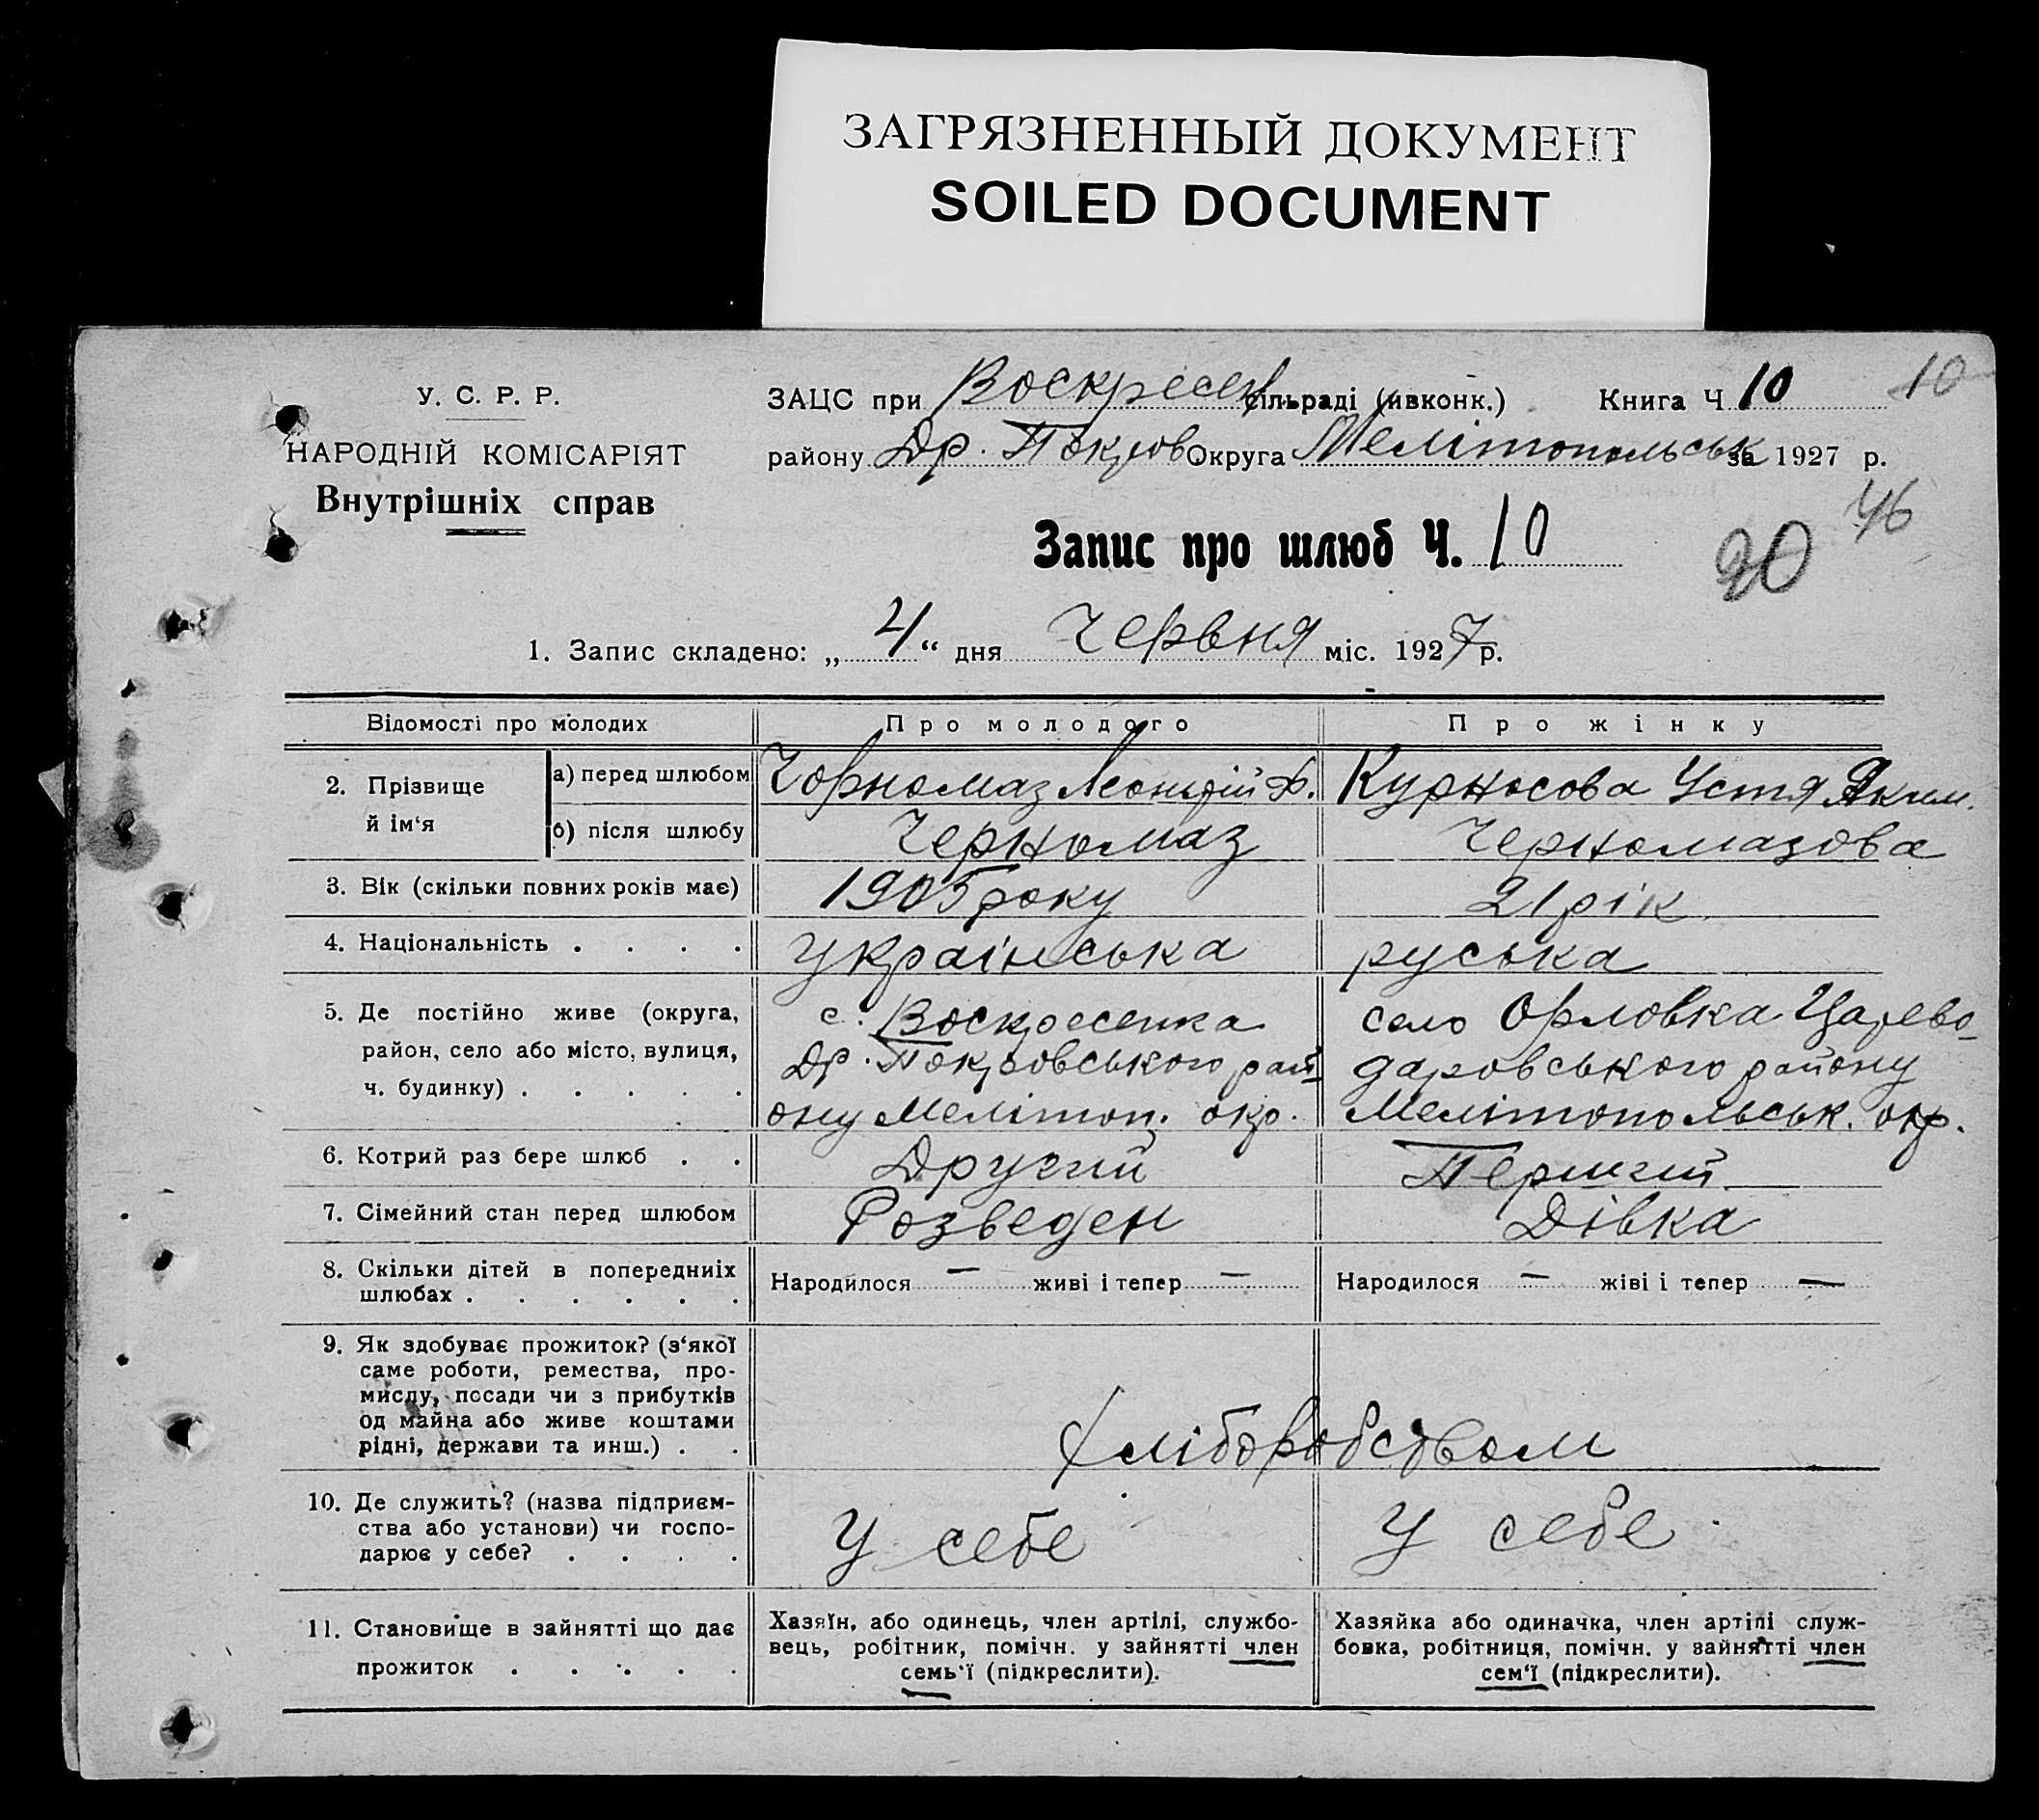 ЗАГРЯЗНЕННЫЙ ДОКУМЕНТ
SOILED DOCUMENT
У. С. Р. Р.
НАРОДНІЙ КОМІСАРІЯТ
Внутрішніх справ
ЗАЦС при Воскресен сільраді (ивконк.) Книга Ч 10 10
району Др. Покров Округа Мелітопольськ за 1927 р.
46
Запис про шлюб Ч. 10
1. Запис складено: „ 4 “ дня Червня міс. 1927 р.
Відомості про молодих Про молодого Про жінку
2. Прізвище й ім‘я
а) перед шлюбом Чорномаз Леонтій Ф. Курносова Устя Яким.
б) після шлюбу Черномаз Черномазова
3. Вік (скільки повних років має) 1905 року 21 рік
4. Національність . . . . українська руська
5. Де постійно живе (округа,
район, село або місто, вулиця,
ч. будинку) . . . . .
с. Воскресенка
Др. Покровського рай-
ону Мелітоп. окр.
село Орловка Царево-
даровського району
Мелітопольськ. окр.
6. Котрий раз бере шлюб . . Другий Перший
7. Сімейний стан перед шлюбом Розведен Дівка
8. Скільки дітей в попередниіх
шлюбах . . . . . .
Народилося — живі і тепер — Народилося — жіві і тепер —
9. Як здобуває прожиток? (з‘якої
саме роботи, ремества, про-
мислу, посади чи з прибутків
од майна або живе коштами
рідні, держави та инш.) . .
хліборобством
10. Де служить? (назва підприєм-
ства або установи) чи госпо-
дарює у себе? . . . .
У себе У себе
11. Становище в зайнятті що дає
прожиток . . . . .
Хазяїн, або одинець, член артілі, службо-
вець, робітник, помічн. у зайнятті член
семь‘ї (підкреслити).
Хазяйка або одиначка, член артілі служ-
бовка, робітниця, помічн. у зайнятті член
сем‘ї (підкреслити).